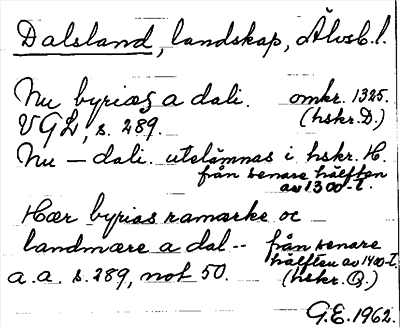 Dalsland, landskap, Älvsb. l.
Nu byriæs a dali. omkr. 1325.
VGL, s. 289. (hskr. D.)
Nu — dali. utelämnas i hskr. H.
från senare hälften
av 1300-t.
Hær byrias ramærke oc
landmære a dal -- från senare
hälften av 1400-t.
a.a. s. 289, not 50. (hskr. Q.)
G.E. 1962.